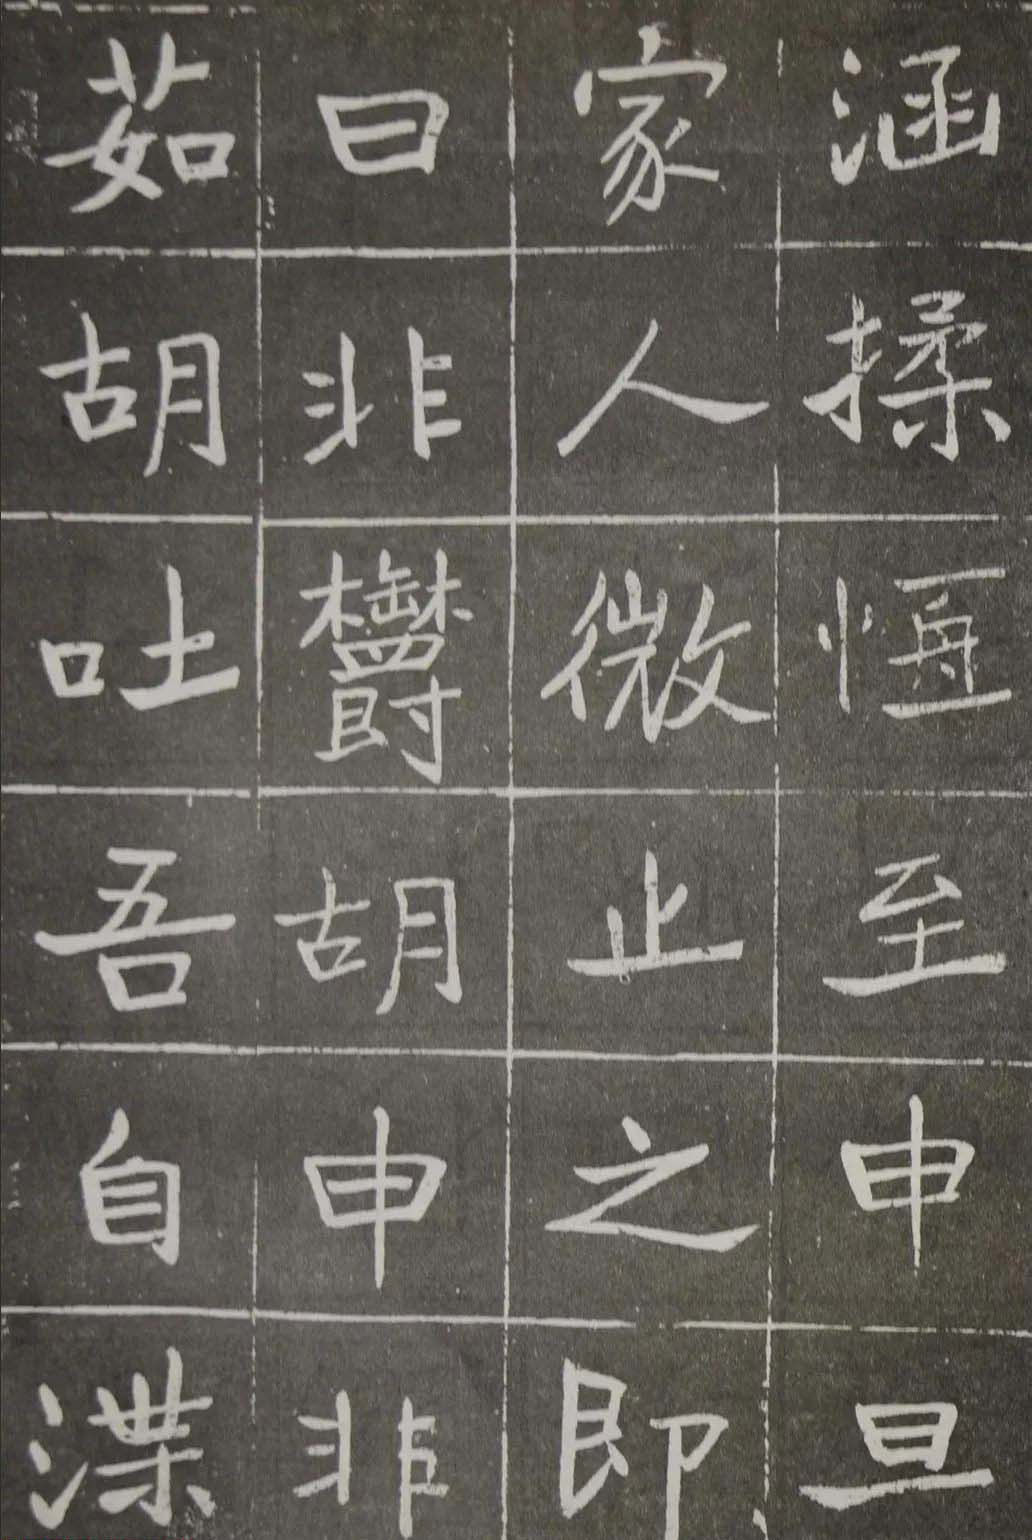 涵揉恆至申旦
家人微止之即
曰非欝胡申非
茹胡吐吾自渫